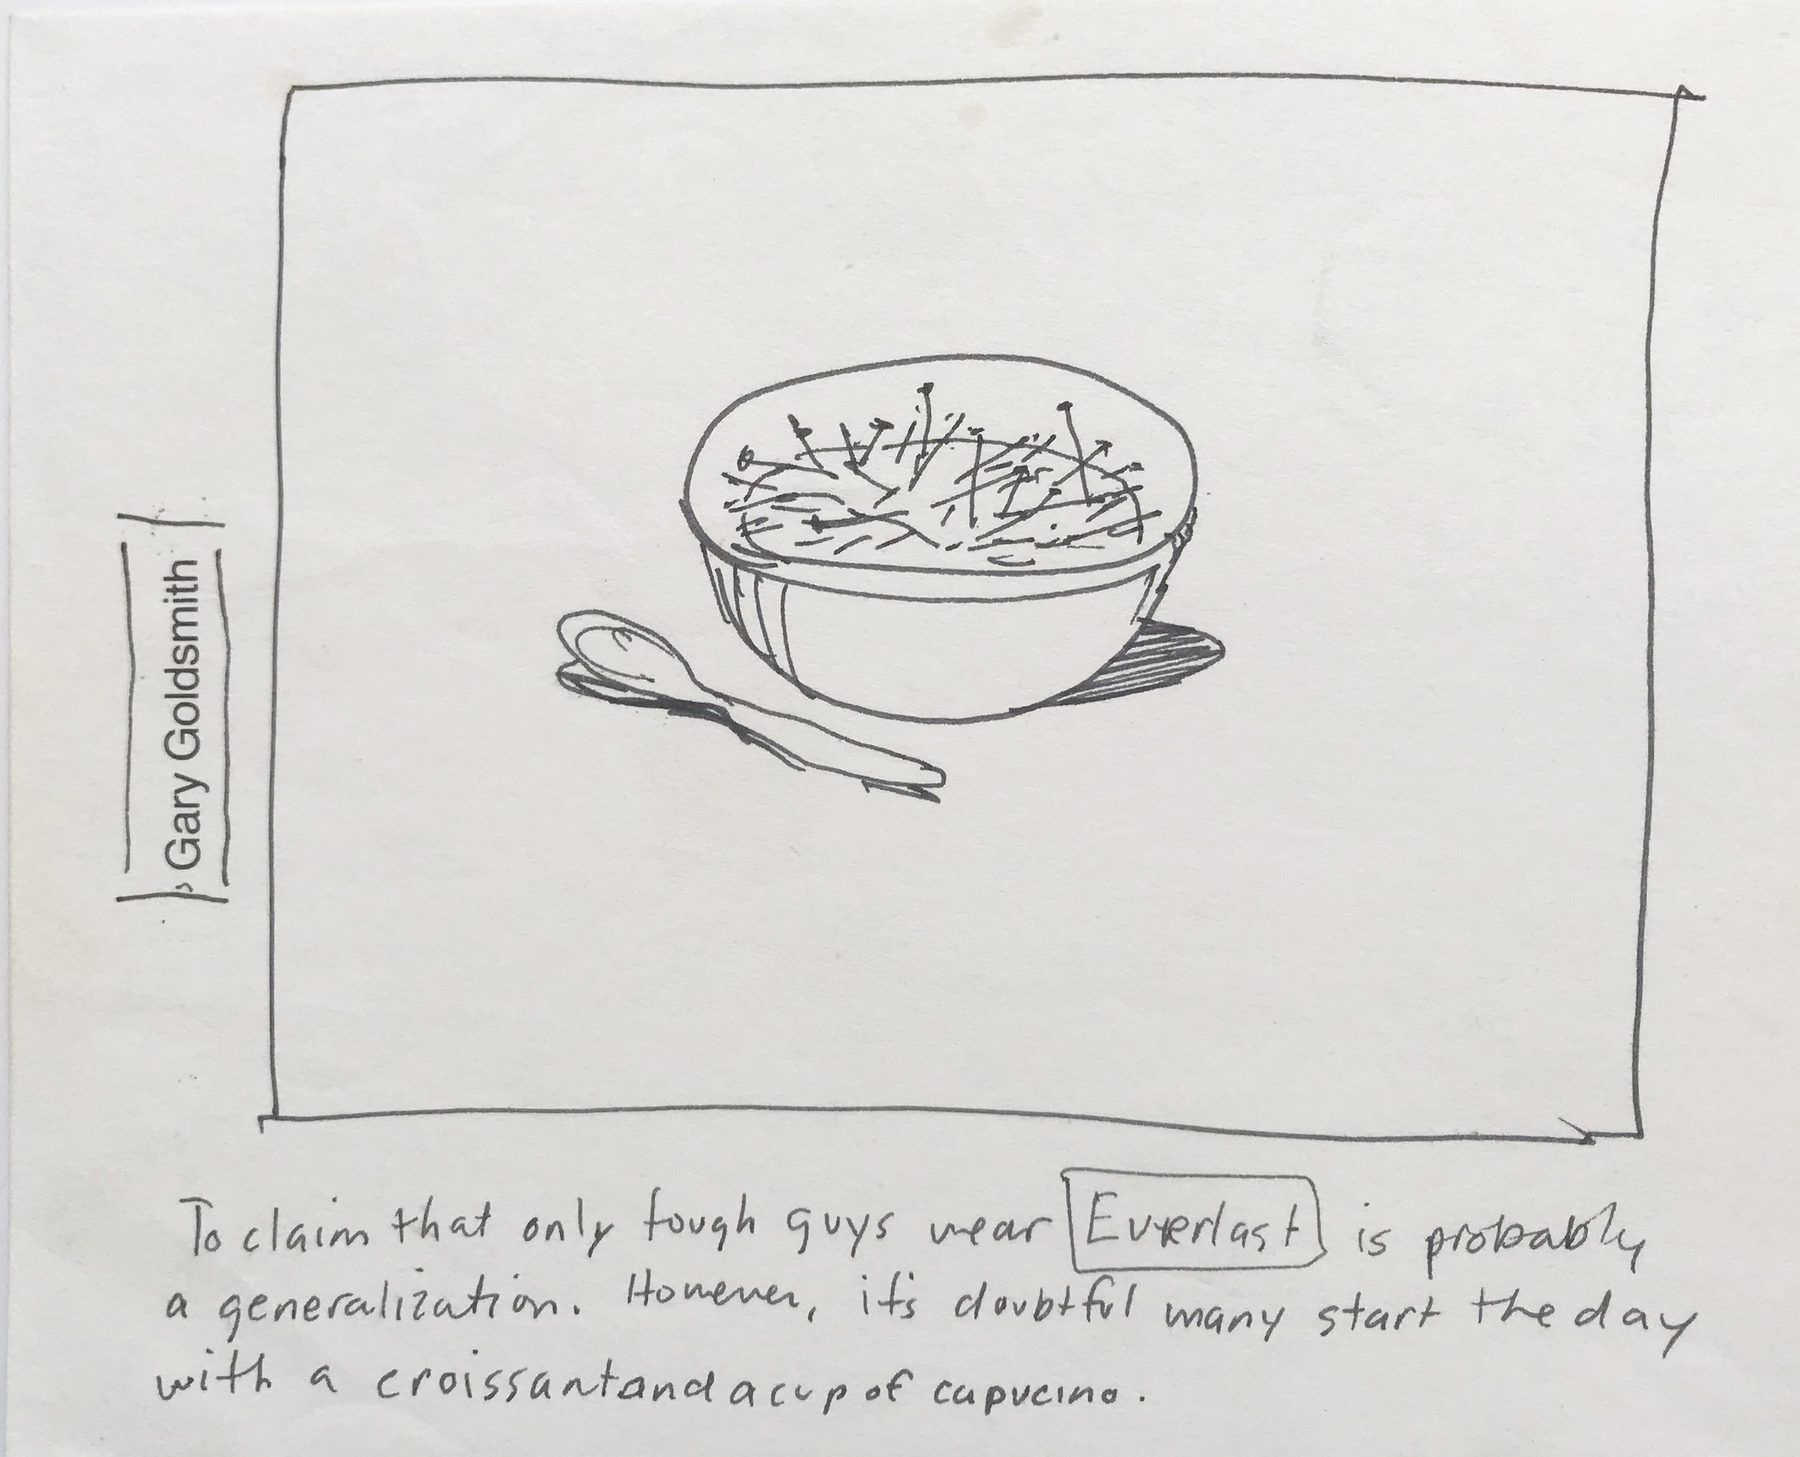 Gary Goldsmith
To claim that only tough guys wear Everlast is probably
a generalization. However, it's doubtful many start the day
with a croissant and a cup of capucino.